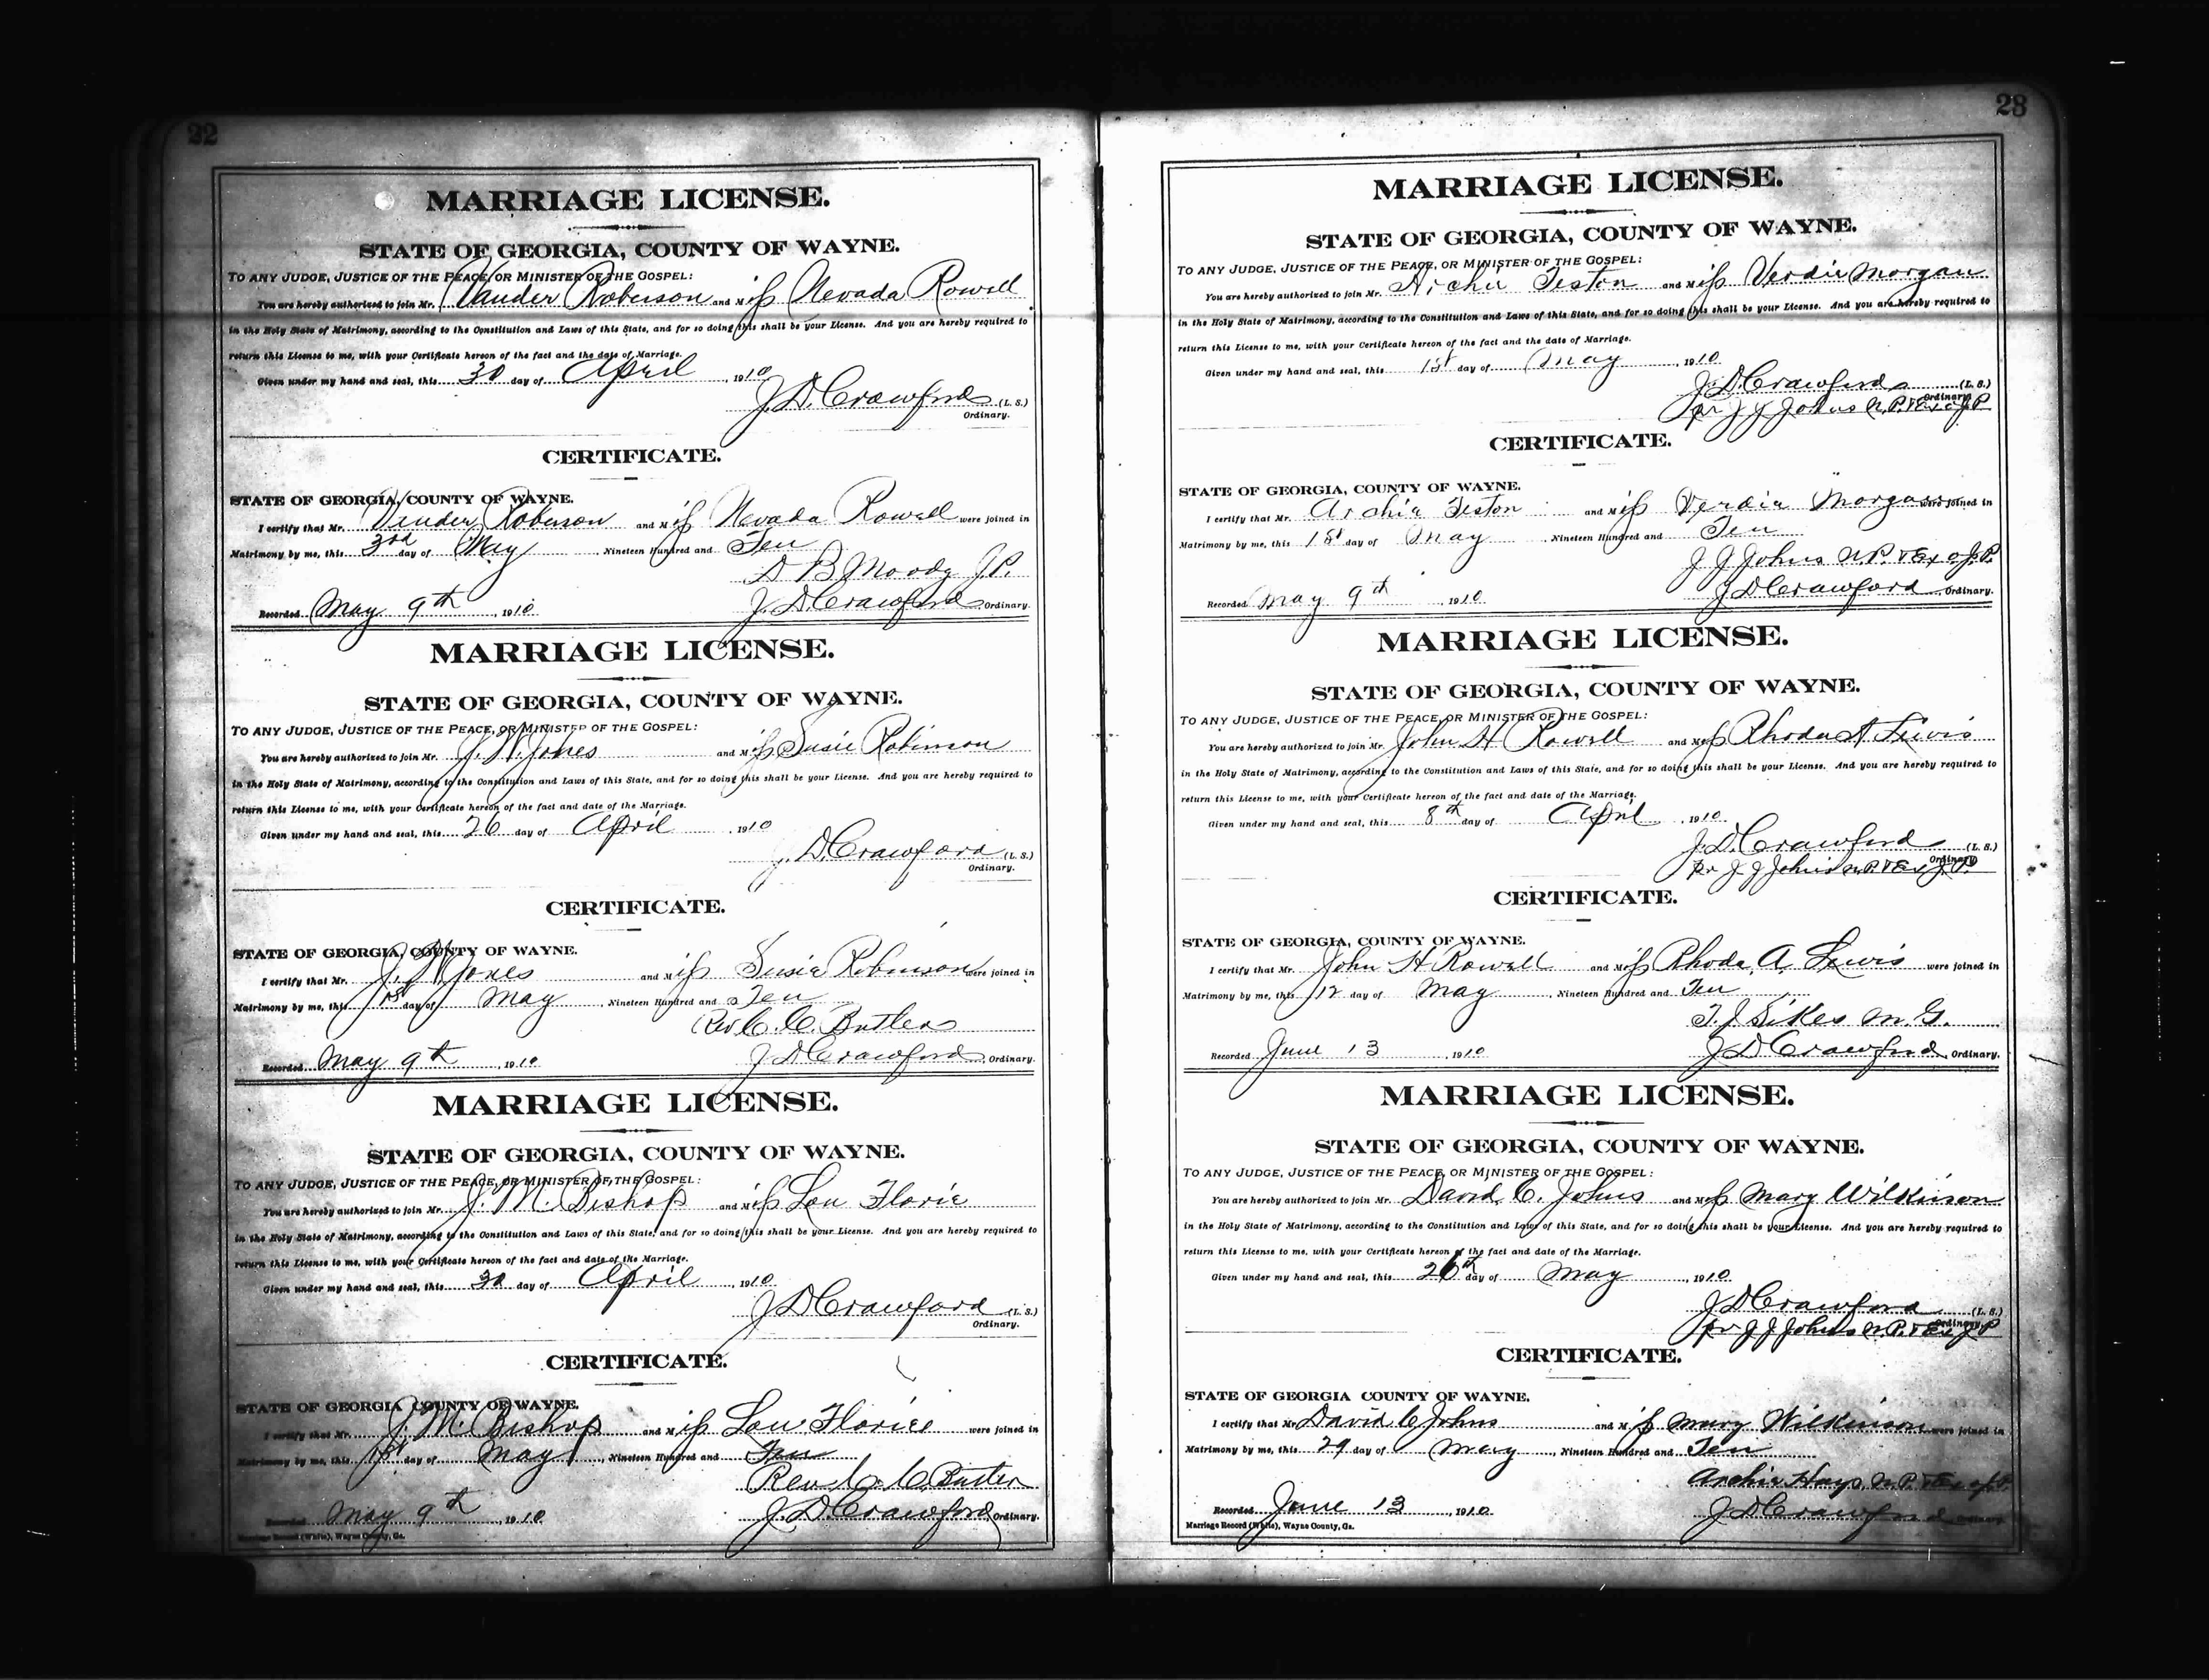 22
MARRIAGE LICENSE.
STATE OF GEORGIA, COUNTY OF WAYNE.
TO ANY JUDGE, JUSTICE OF THE PEACE, OR MINISTER OF THE GOSPEL:
You are hereby authorized to join Mr. Vander Roberson and Miss Nevada Rowell
in the Holy State of Matrimony, according to the Constitution and Laws of this State, and for so doing this shall be your License. And you are hereby required to
return this License to me, with your Certificate hereon of the fact and the date of Marriage.
Given under my hand and seal, this 30 day of April, 1910
J. D. Crawford (L. S.)
Ordinary.
CERTIFICATE.
STATE OF GEORGIA, COUNTY OF WAYNE.
I certify that Mr. Vender Roberson and Miss Nevada Rowell were joined in
Matrimony by me, this 3rd day of May, Nineteen Hundred and Ten
D B Moody J.P.
Recorded May 9th, 1910. J. D. Crawford Ordinary.
MARRIAGE LICENSE.
STATE OF GEORGIA, COUNTY OF WAYNE.
TO ANY JUDGE, JUSTICE OF THE PEACE, OR MINISTER OF THE GOSPEL:
You are hereby authorized to join Mr. J. W. Jones and Miss Susie Robinson
in the Holy State of Matrimony, according to the Constitution and Laws of this State, and for so doing this shall be your License. And you are hereby required to
return this License to me, with your Certificate hereon of the fact and date of the Marriage.
Given under my hand and seal, this 26 day of April, 1910
J. D. Crawford (L. S.)
Ordinary.
CERTIFICATE.
STATE OF GEORGIA, COUNTY OF WAYNE.
I certify that Mr. J. W. Jones and Miss Susie Robinson were joined in
Matrimony by me, this 1st day of May, Nineteen Hundred and Ten
Rev C. C. Butler
Recorded May 9th, 1910. J. D. Crawford, Ordinary.
MARRIAGE LICENSE.
STATE OF GEORGIA, COUNTY OF WAYNE.
TO ANY JUDGE, JUSTICE OF THE PEACE, OR MINISTER OF THE GOSPEL:
You are hereby authorized to join Mr. J. M. Bishop and Miss Lou Florie
in the Holy State of Matrimony, according to the Constitution and Laws of this State, and for so doing this shall be your License. And you are hereby required to
return this License to me, with your Certificate hereon of the fact and date of the Marriage.
Given under my hand and seal, this 30 day of April, 1910.
J D Crawford (L. S.)
Ordinary.
CERTIFICATE.
STATE OF GEORGIA COUNTY OF WAYNE.
I certify that Mr. J. M. Bishop and Miss Lou were joined in
Matrimony by me, this 1st day of May, Nineteen Hundred and Ten
Rev C. C. Butler
Recorded May 9th, 1910. J. D. Crawford, Ordinary.
Marriage Record (White), Wayne County, Ga.
28
MARRIAGE LICENSE.
STATE OF GEORGIA, COUNTY OF WAYNE.
TO ANY JUDGE, JUSTICE OF THE PEACE, OR MINISTER OF THE GOSPEL:
You are hereby authorized to join Mr. Archie Teston and Miss Verdie Morgan
in the Holy State of Matrimony, according to the Constitution and Laws of this State, and for so doing this shall be your License. And you are hereby required to
return this License to me, with your Certificate hereon of the fact and the date of Marriage.
Given under my hand and seal, this 1st day of May, 1910.
J. D. Crawford (L. S.)
Ordinary.
pr J J Johns N.P. & Ex of J.P
CERTIFICATE.
STATE OF GEORGIA, COUNTY OF WAYNE.
I certify that Mr. Archie Teston and Miss Verdia Morgan were joined in
Matrimony by me, this 1st day of May, Nineteen Hundred and Ten
J J Johns N.P. & Ex of J.P.
Recorded May 9th, 1910. J D Crawford Ordinary.
MARRIAGE LICENSE.
STATE OF GEORGIA, COUNTY OF WAYNE.
TO ANY JUDGE, JUSTICE OF THE PEACE, OR MINISTER OF THE GOSPEL:
You are hereby authorized to join Mr. John H Rowell and Miss Rhoda A Lewis
in the Holy State of Matrimony, according to the Constitution and Laws of this State, and for so doing this shall be your License. And you are hereby required to
return this License to me, with your Certificate hereon of the fact and date of the Marriage.
Given under my hand and seal, this 8th day of April, 1910.
J. D. Crawford (L. S.)
Ordinary
Pr J J Johns N.P. & Ex J.P.
CERTIFICATE.
STATE OF GEORGIA, COUNTY OF WAYNE.
I certify that Mr. John H Rowell and Miss Rhoda A Lewis were joined in
Matrimony by me, this 12 day of May, Nineteen Hundred and Ten
T J Sikes M.G.
Recorded June 13, 1910. J D Crawford, Ordinary.
MARRIAGE LICENSE.
STATE OF GEORGIA, COUNTY OF WAYNE.
TO ANY JUDGE, JUSTICE OF THE PEACE, OR MINISTER OF THE GOSPEL:
You are hereby authorized to join Mr. David C. Johns and Miss Mary Wilkinson
in the Holy State of Matrimony, according to the Constitution and Laws of this State, and for so doing this shall be your License. And you are hereby required to
return this License to me, with your Certificate hereon of the fact and date of the Marriage.
Given under my hand and seal, this 26th day of May, 1910.
J D Crawford (L. S.)
Ordinary.
pr J J Johns N.P. & Ex J P
CERTIFICATE.
STATE OF GEORGIA COUNTY OF WAYNE.
I certify that Mr. David C Johns and Miss Mary Wilkinson were joined in
Matrimony by me, this 29 day of May, Nineteen Hundred and Ten
Archie Hays N.P. & Ex of J.P.
Recorded June 13, 1910. J D Crawford Ordinary.
Marriage Record (White), Wayne County, Ga.